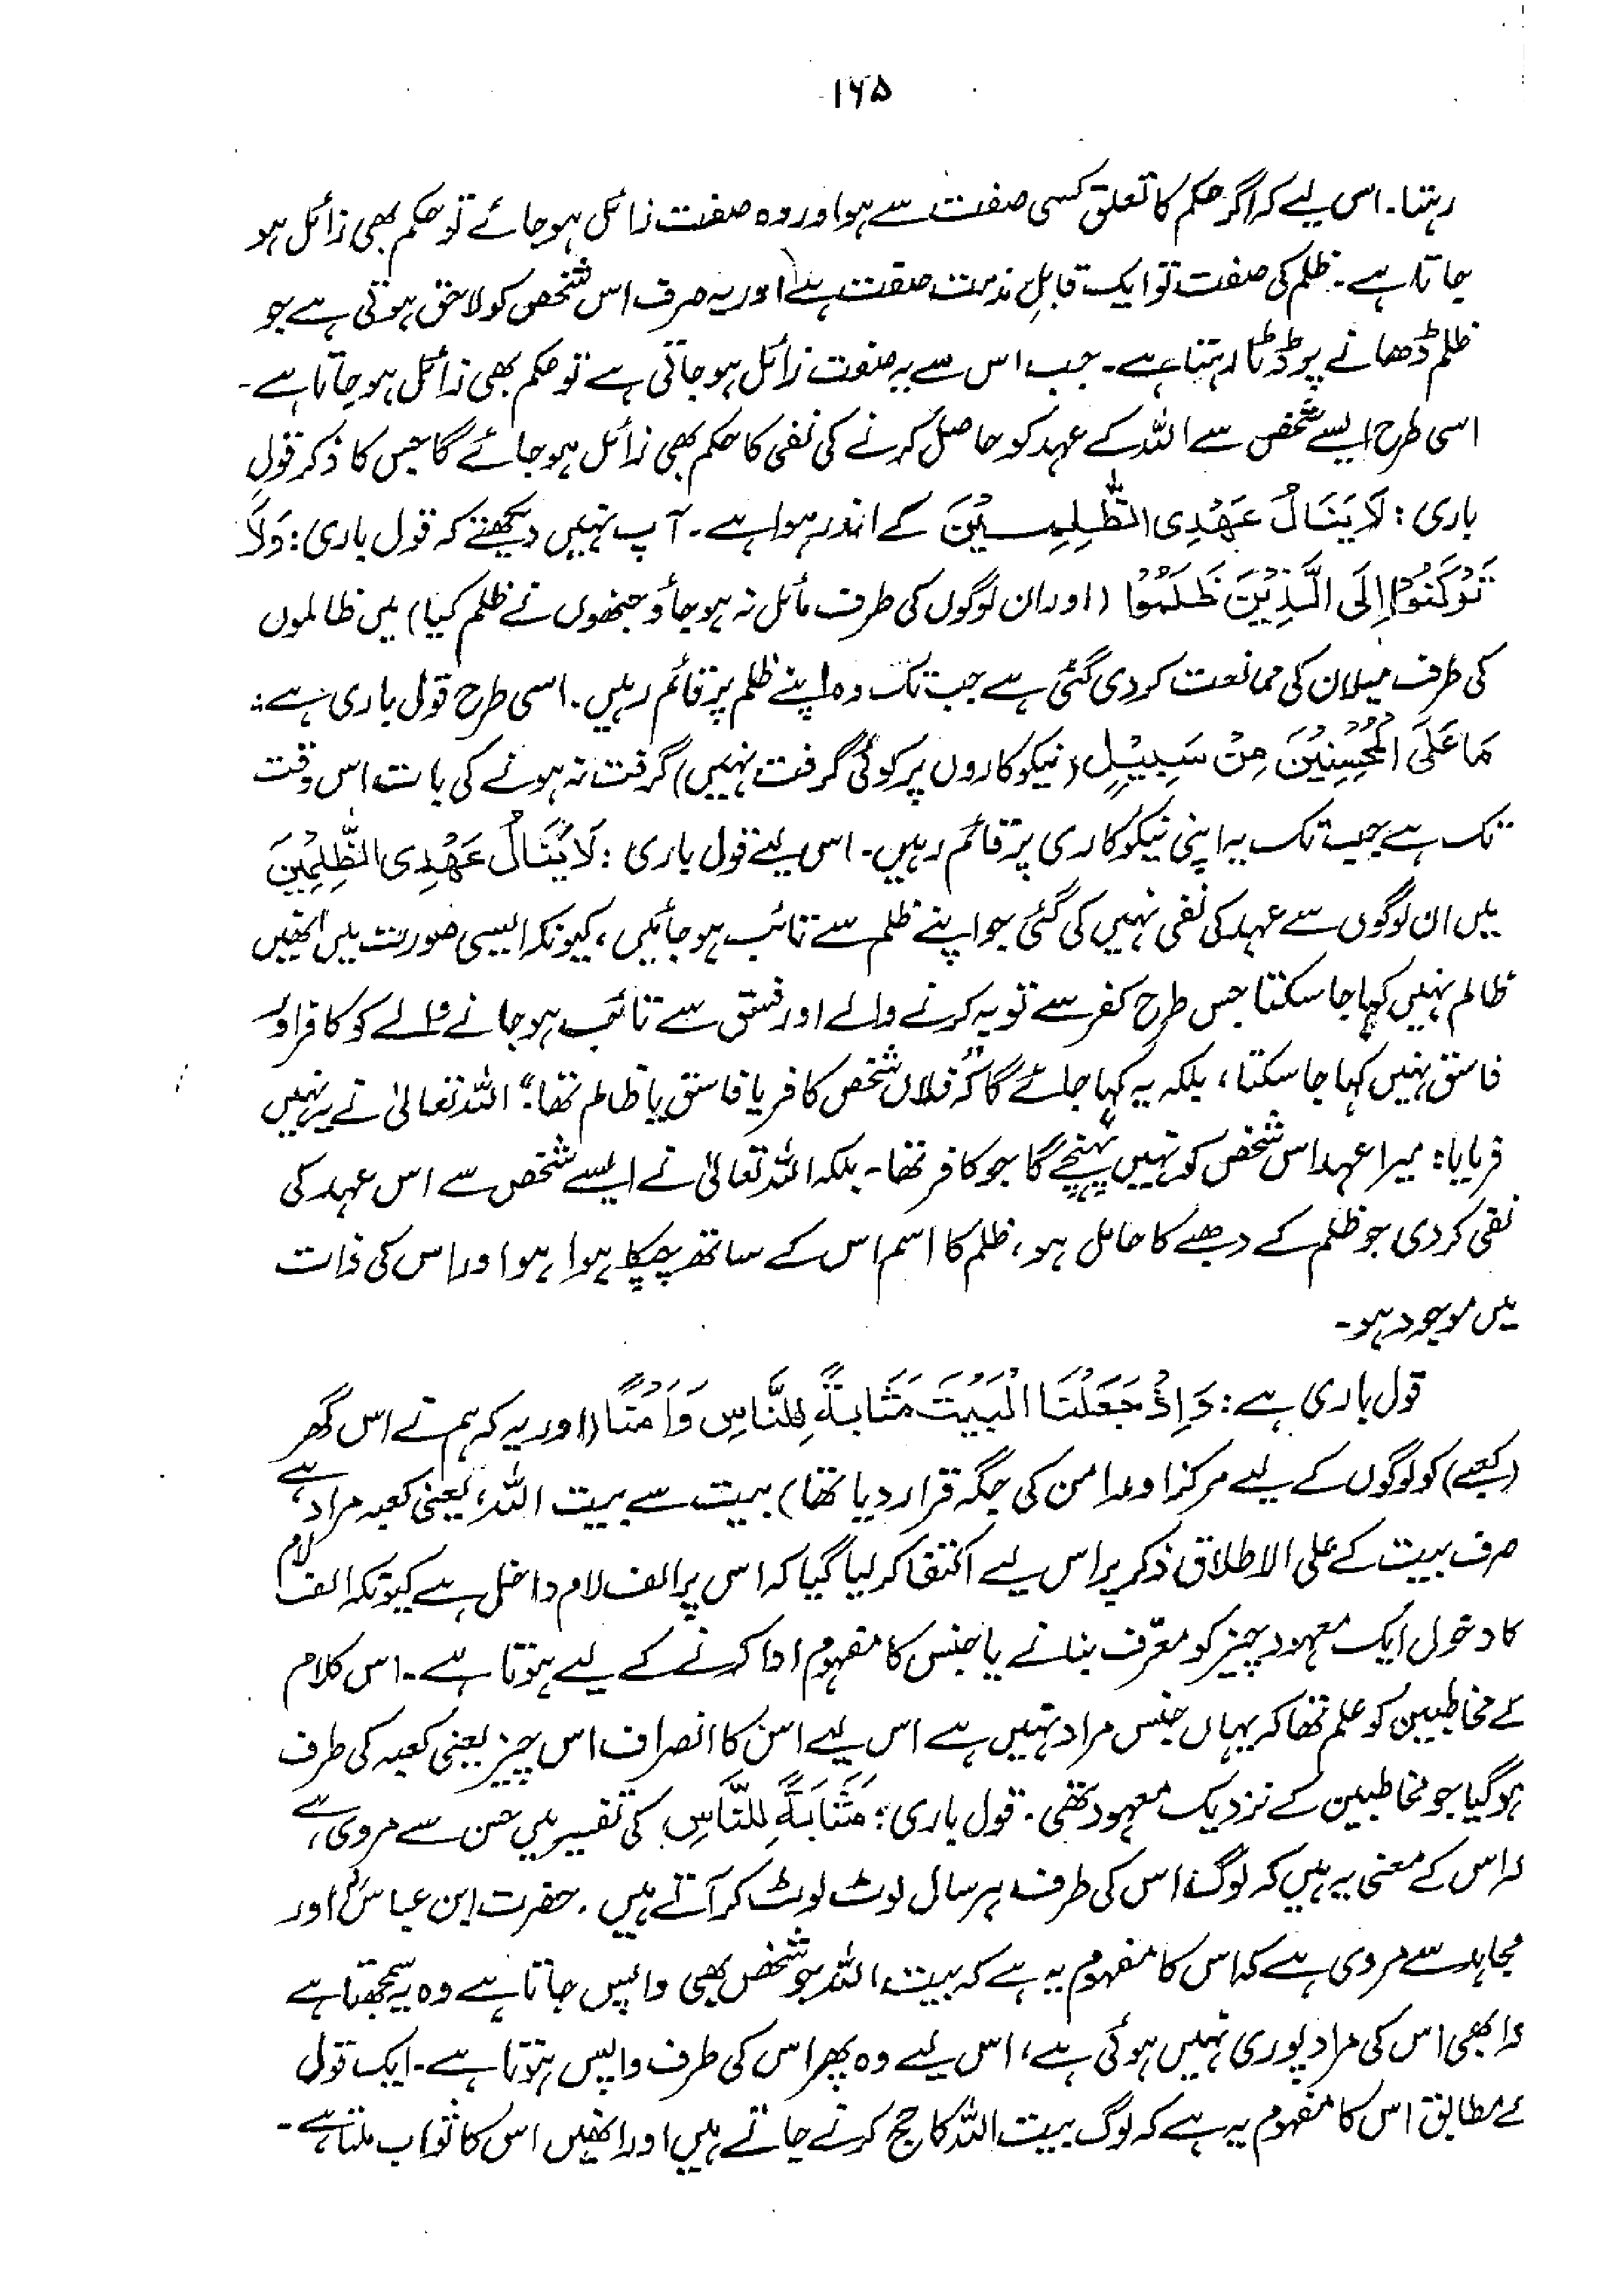 ۱۶۵
رہتا۔ اس لیے کہ اگر حکم کا تعلق کسی صفت سے ہو اور وہ صفت زائل ہو جائے تو حکم بھی زائل ہو
جاتا ہے۔ ظلم کی صفت تو ایک قابلِ مذمت صفت ہے اور یہ صرف اس شخص کو لاحق ہوتی ہے جو
ظلم ڈھانے پر ڈٹا رہتا ہے۔ جب اس سے یہ صفت زائل ہو جاتی ہے تو حکم بھی زائل ہو جاتا ہے۔
اسی طرح ایسے شخص سے اللہ کے عہد کو حاصل کرنے کی نفی کا حکم بھی زائل ہو جائے گا جس کا ذکر قولِ
باری: لَا يَنَالُ عَهْدِى الظّٰلِمِيْنَ کے اندر ہوا ہے۔ آپ نہیں دیکھتے کہ قول باری: وَلَا
تَرْكَنُوْا اِلَى الَّذِيْنَ ظَلَمُوْا (اور ان لوگوں کی طرف مائل نہ ہو جاؤ جنھوں نے ظلم کیا) میں ظالموں
کی طرف میلان کی ممانعت کر دی گئی ہے جب تک وہ اپنے ظلم پر قائم رہیں۔ اسی طرح قول باری ہے:
مَا عَلَى الْمُحْسِنِيْنَ مِنْ سَبِيْلٍ (نیکوکاروں پر کوئی گرفت نہیں) گرفت نہ ہونے کی بات اس وقت
تک ہے جب تک یہ اپنی نیکوکاری پر قائم رہیں۔ اس لیے قول باری: لَا يَنَالُ عَهْدِى الظّٰلِمِيْنَ
میں ان لوگوں سے عہد کی نفی نہیں کی گئی جو اپنے ظلم سے تائب ہو جائیں، کیونکہ ایسی صورت میں انھیں
ظالم نہیں کہا جا سکتا جس طرح کفر سے توبہ کرنے والے اور فسق سے تائب ہو جانے والے کو کافر اور
فاسق نہیں کہا جا سکتا، بلکہ یہ کہا جائے گا کہ "فلاں شخص کافر یا فاسق یا ظالم تھا"۔ اللہ تعالیٰ نے یہ نہیں
فرمایا: میرا عہد اس شخص کو نہیں پہنچے گا جو کافر تھا۔ بلکہ اللہ تعالیٰ نے ایسے شخص سے اس عہد کی
نفی کر دی جو ظلم کے دھبے کا حامل ہو، ظلم کا اسم اس کے ساتھ چپکا ہوا ہو اور اس کی ذات
میں موجود ہو۔
قول باری ہے: وَاِذْ جَعَلْنَا الْبَيْتَ مَثَابَةً لِّلنَّاسِ وَاَمْنًا (اور یہ کہ ہم نے اس گھر
(کعبے) کو لوگوں کے لیے مرکز اور امن کی جگہ قرار دیا تھا) بیت سے بیت اللہ یعنی کعبہ مراد ہے
صرف بیت کے علی الاطلاق ذکر پر اس لیے اکتفا کر لیا گیا کہ اس پر الف لام داخل ہے کیونکہ الف لام
کا دخول ایک معہود چیز کو معرّف بنانے یا جنس کا مفہوم ادا کرنے کے لیے ہوتا ہے۔ اس کلام
کے مخاطبین کو علم تھا کہ یہاں جنس مراد نہیں ہے اس لیے اس کا انصراف اس چیز یعنی کعبہ کی طرف
ہو گیا جو مخاطبین کے نزدیک معہود تھی۔ قول باری: مَثَابَةً لِّلنَّاسِ کی تفسیر میں حسن سے مروی ہے،
کہ اس کے معنی یہ ہیں کہ لوگ اس کی طرف ہر سال لوٹ لوٹ کر آتے ہیں۔ حضرت ابن عباسؓ اور
مجاہد سے مروی ہے کہ اس کا مفہوم یہ ہے کہ بیت اللہ جو شخص بھی واپس جاتا ہے وہ یہ سمجھتا ہے
کہ ابھی اس کی مراد پوری نہیں ہوئی ہے، اس لیے وہ پھر اس کی طرف واپس ہوتا ہے۔ ایک قول
کے مطابق اس کا مفہوم یہ ہے کہ لوگ بیت اللہ کا حج کرنے جاتے ہیں اور انھیں اس کا ثواب ملتا ہے۔